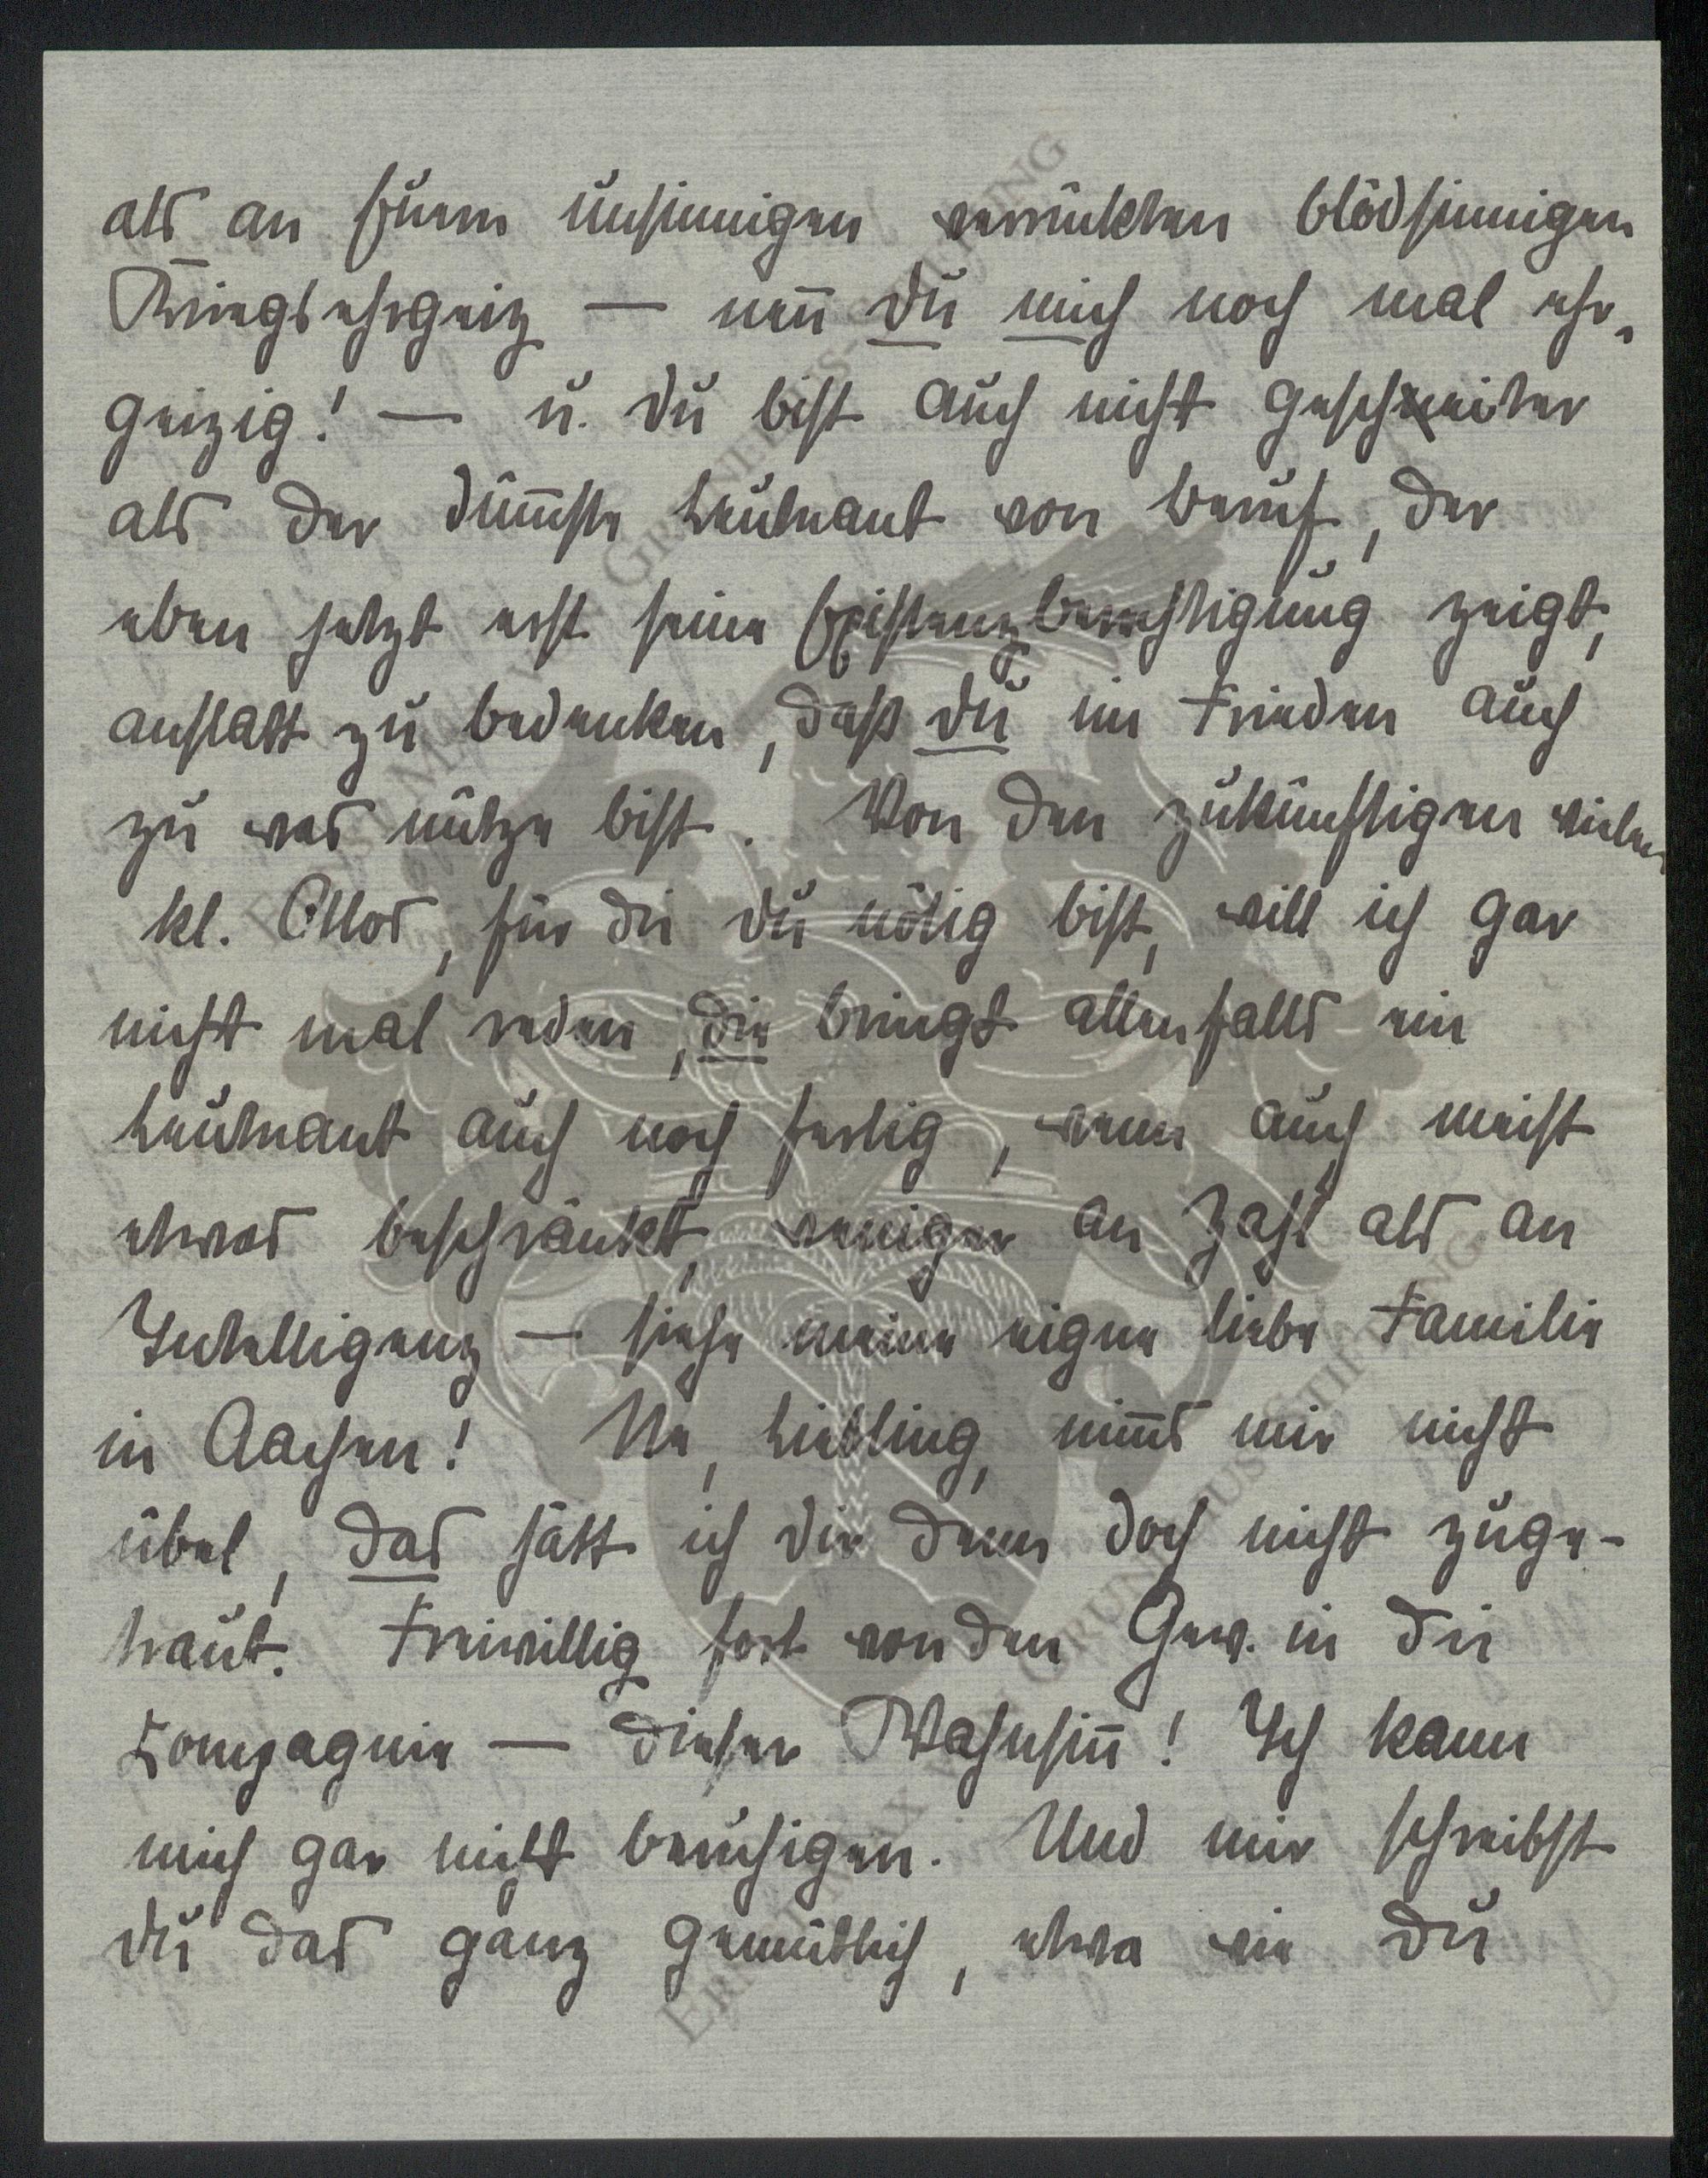 als an Euern unsinnigen verrückten blödsinnigen
Kriegsehrgeiz — nen̄ Du mich noch mal ehr-
geizig! — u. Du bist auch nicht gescheiter
als der düm̄ste Leutnant von Beruf, der
eben jetzt erst seine Existenzberechtigung zeigt,
anstatt zu bedenken, daß Du im Frieden auch
zu was nütze bist. Von den zukünftigen vielen
kl. Ottos, für die Du nötig bist, will ich gar
nicht mal reden, die bringt allenfalls ein
Leutnant auch noch fertig, wenn auch meist
etwas beschränkt, weniger an Zahl als an
Intelligenz — siehe meine eigne liebe Familie
in Aachen! Ne, Liebling, nim̄s mir nicht
übel, das hätt ich Dir denn doch nicht zuge-
traut. Freiwillig fort von den Gew. in die
Compagnie — dieser Wahnsin̄! Ich kann
mich gar nicht beruhigen. Und mir schreibst
Du das ganz gemütlich, etwa wie Du